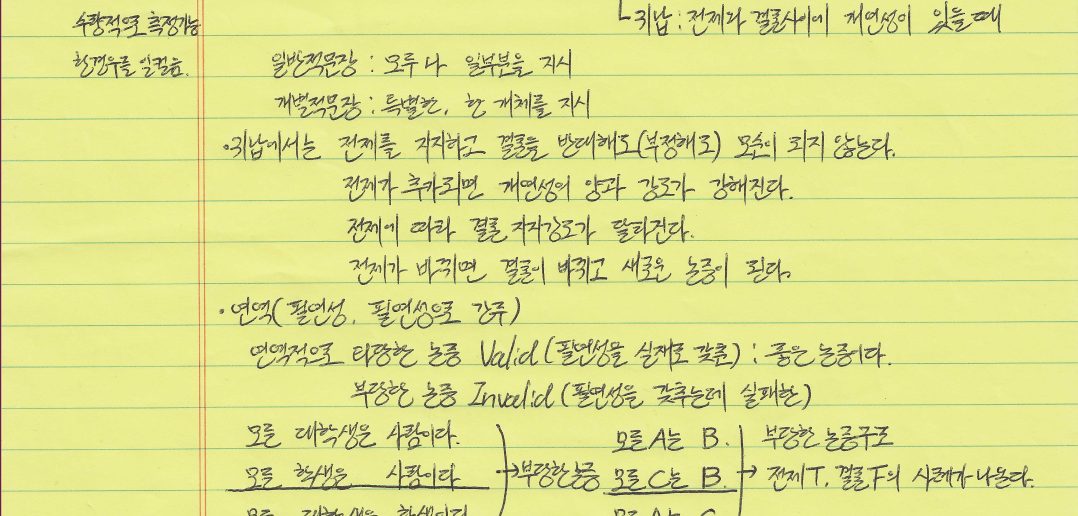 └귀납 : 전제와 결론사이에 개연성이 있을 때
수량적으로 측정가능
한경우를 일컬음.
일반적문장 : 모두나 일부분을 지시
개별적문장 : 특별한, 한 개체를 지시
·귀납에서는 전제를 지지하고 결론을 반대해도(부정해도) 모순이 되지 않는다.
전제가 추가되면 개연성의 양과 강도가 강해진다.
전제에 따라 결론 지지강도가 달라진다.
전제가 바뀌면 결론이 바뀌고 새로운 논증이 된다.
·연역(필연성, 필연성으로 간주)
연역적으로 타당한 논증 Valid (필연성을 실제로 갖춤) : 좋은 논증이다.
부당한 논증 Invalid (필연성을 갖추는데 실패한)
모든 대학생은 사람이다. 모든 A는 B. 부당한 논증구조
모든 학생은 사람이다 →부당한논증 모든 C는 B. → 전제T, 결론F의 사례가 나온다.
모든 대학생은 학생이다 모든 A는 C